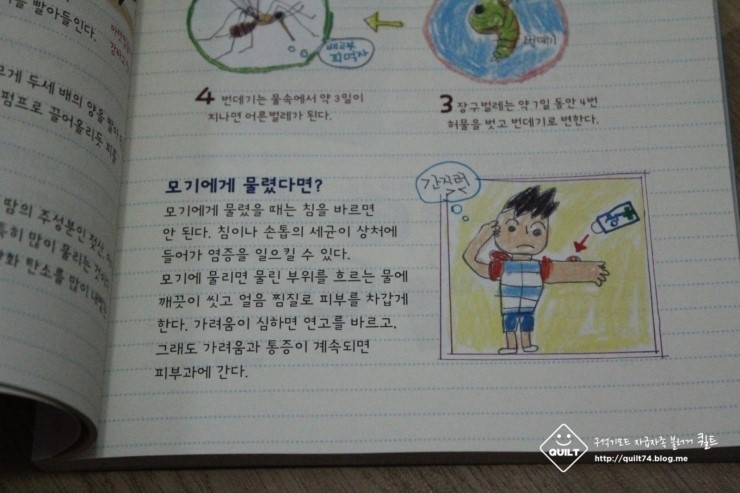 빨아들인다.
게 두세 배의 양을 빨아
펌프로 끌어올리듯 피를
땀의 주성분인 젖산,
특히 많이 물리는 것이
화 탄소를 많이 내뿜
배고픈
피먹자
번데기
4 번데기는 물속에서 약 3일이
지나면 어른벌레가 된다.
3 장구벌레는 약 7일 동안 4번
허물을 벗고 번데기로 변한다.
모기에게 물렸다면?
모기에게 물렸을 때는 침을 바르면
안 된다. 침이나 손톱의 세균이 상처에
들어가 염증을 일으킬 수 있다.
모기에 물리면 물린 부위를 흐르는 물에
깨끗이 씻고 얼음 찜질로 피부를 차갑게
한다. 가려움이 심하면 연고를 바르고,
그래도 가려움과 통증이 계속되면
피부과에 간다.
간지러
QUILT
구석기모드 자급자족 블러거 퀼트
http://quilt74.blog.me